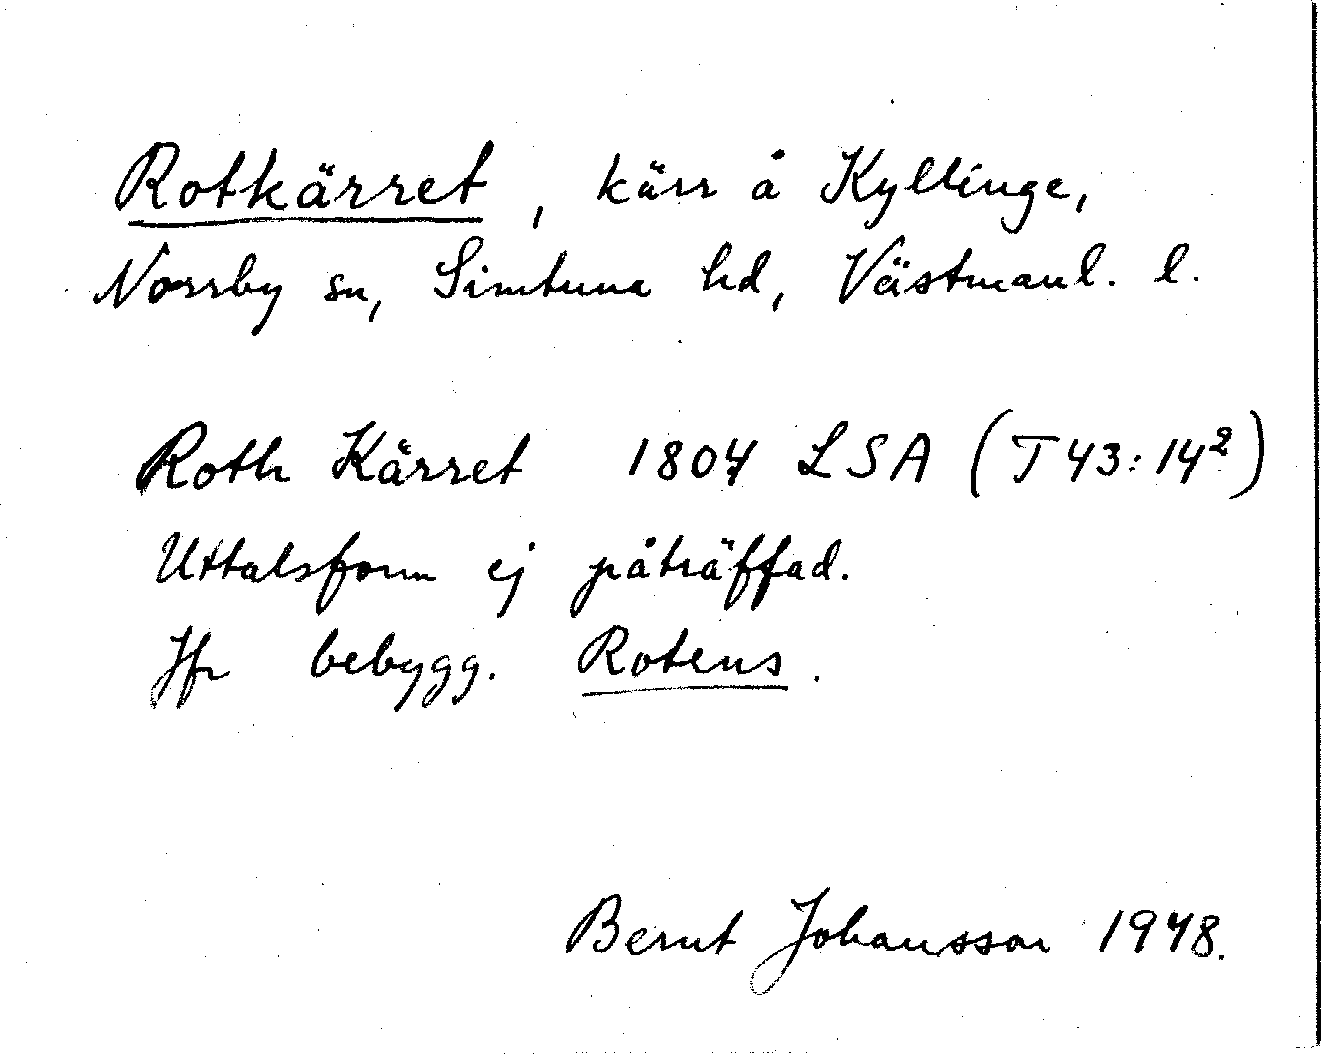 Rotkärret, kärr å Kyllinge,
Norrby sn, Simtuna hd, Västmanl. l.
Roth Kärret 1807 LSA (T43:14²)
Uttalsform ej påträffad.
Jfr bebygg. Rotens.
Bernt Johansson 1948.